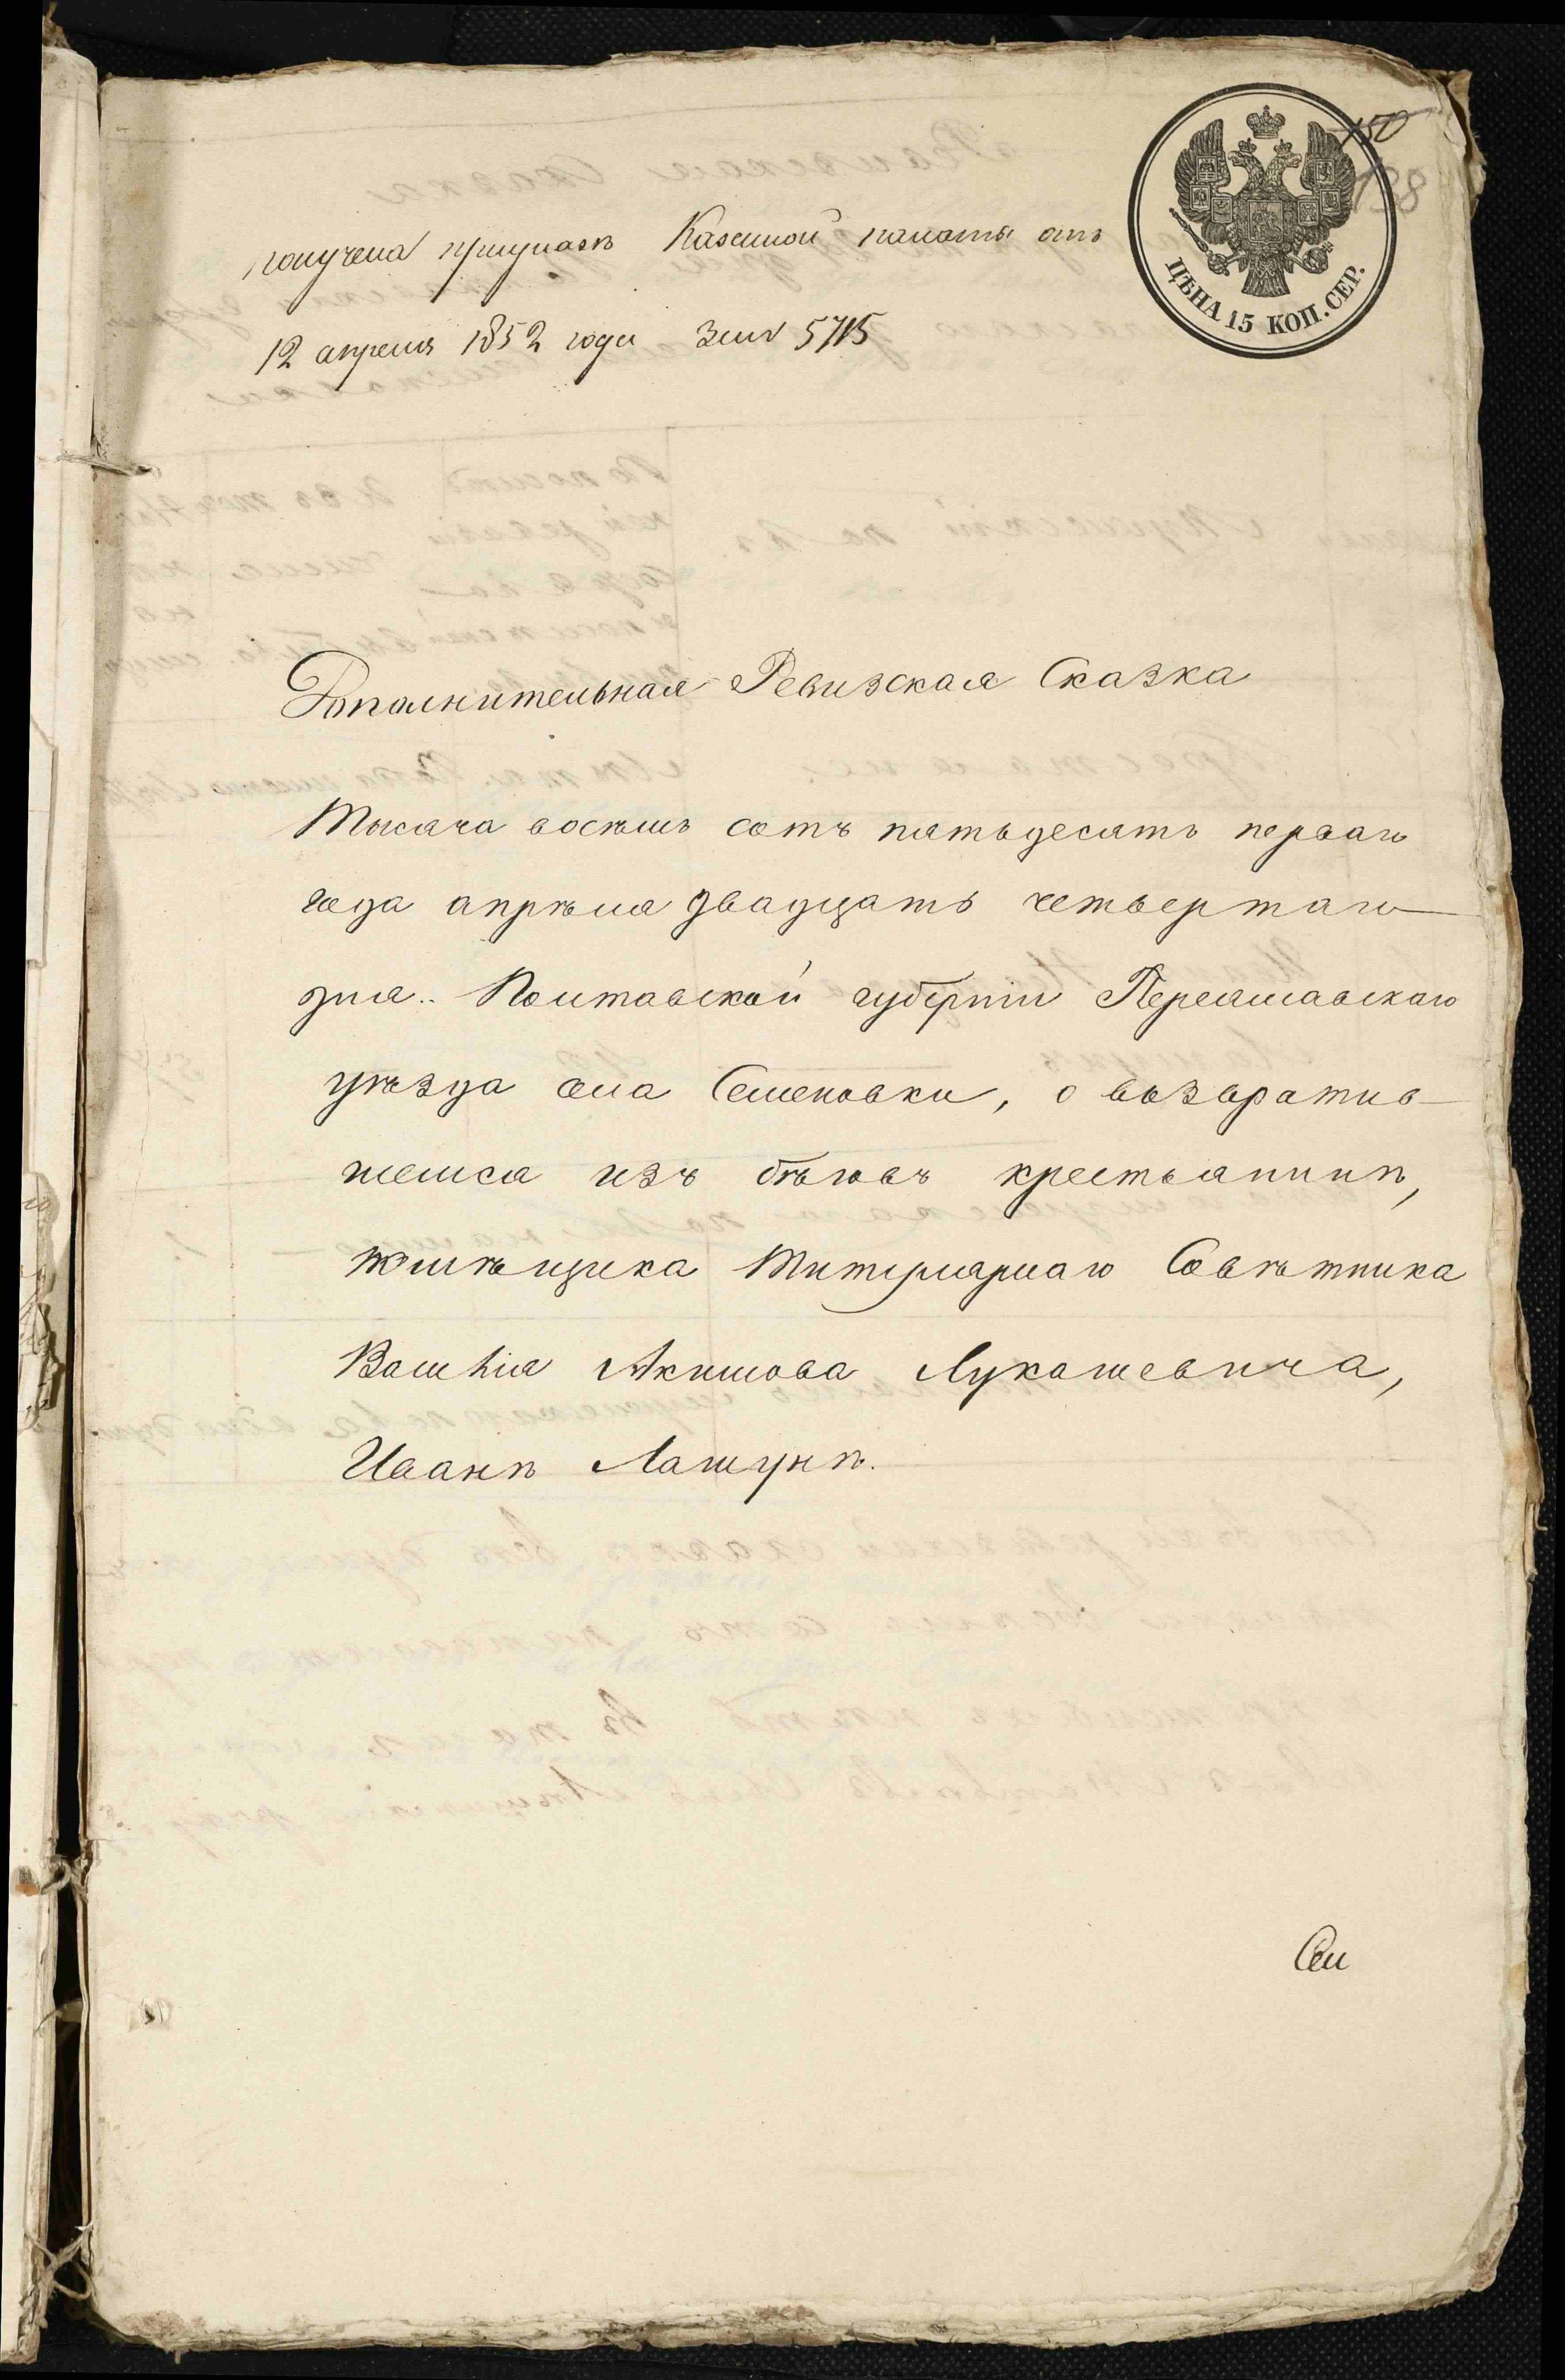 150
158
ЦѢНА 15 КОП. СЕР.
получена приуказѣ Казенной палаты отъ
12 апреля 1852 года за № 5715
Дополнительная Ревизская Сказка
Тысяча восѣмь сотъ пятьдесятъ перваго
года апрѣля двадцать четвертаго
дня. Полтавской губерніи Переяславскаго
уѣзда села Семеновки, о возвратив-
шемся изъ бѣговъ крестьянинѣ,
помѣщика Титулярнаго Совѣтника
Василія Акимова Лукашевича,
Иванѣ Лашунѣ.